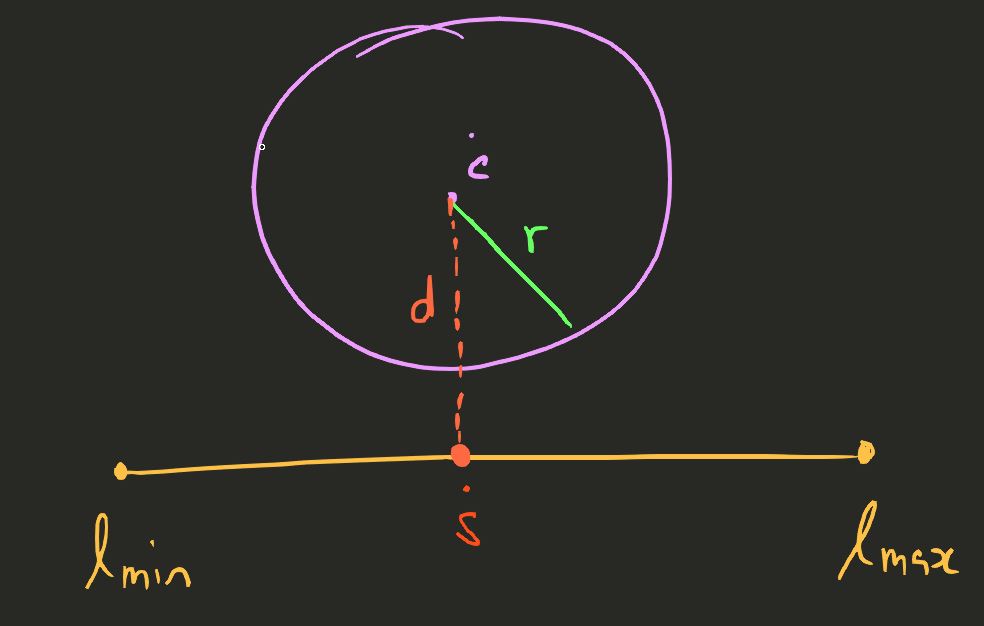 c
r
d
s
lmin
lmax